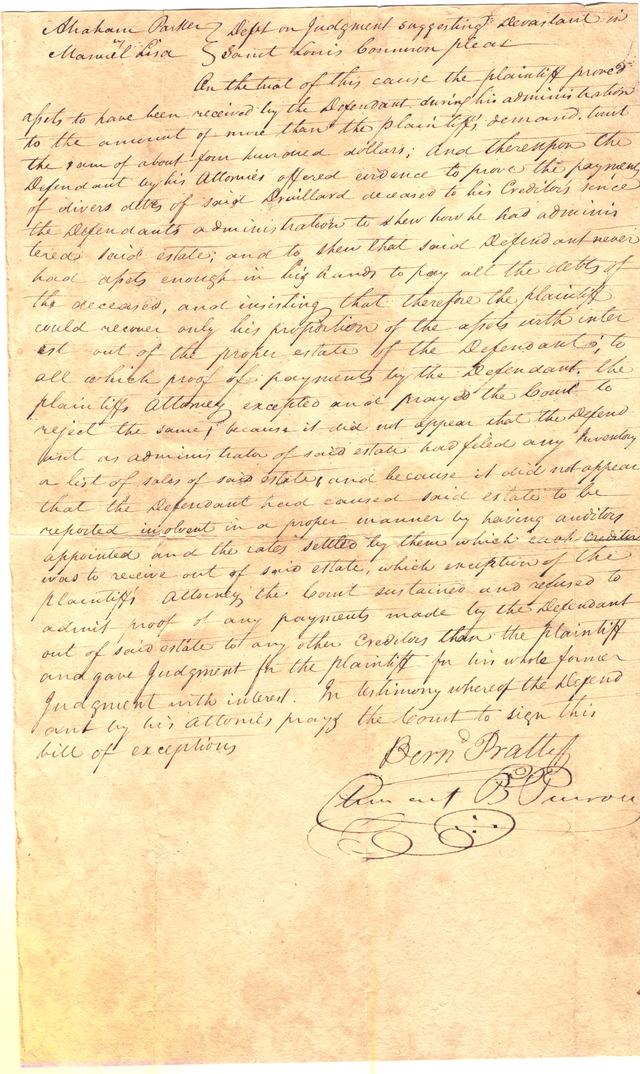 Abraham Parker } Debt on Judgment suggesting Devastavit in
vs
Manuel Lisa } Saint Louis Common pleas
On the trial of this cause the plaintiff proved
assets to have been received by the Defendant during his administration
to the amount of more than the plaintiffs demand. towit
the sum of about four hundred dollars; and thereupon the
Defendant by his Attornies offered evidence to prove the payment
of divers debts of said Druillard deceased to his Creditors since
the Defendants administration to shew how he had adminis
tered said estate; and to shew that said Defendant never
had assets enough in his hands to pay all the debts of
the deceased, and insisting that therefore the plaintiff
could recover only his proportion of the assets with inter
est out of the proper estate of the Defendant; to
all which proof of payments by the Defendant. the
plaintiffs Attorney excepted and prayed the Court to
reject the same; because it did not appear that the Defend
ant as administrator of said estate had filed any Inventory
a list of sales of said estate, and because it did not appear
that the Defendant had caused said estate to be
reported insolvent in a proper manner by having auditors
appointed and the rates settled by them which each creditor
was to receive out of said estate, which exception of the
plaintiffs Attorney the Court sustained and refused to
admit proof of any payments made by the Defendant
out of said estate to any other Creditors than the plaintiff
and gave Judgment for the plaintiff for his whole former
Judgment with interest. In testimony whereof the Defend
ant by his Attornies prays the Court to sign this
bill of exceptions
Bernd Pratte
B